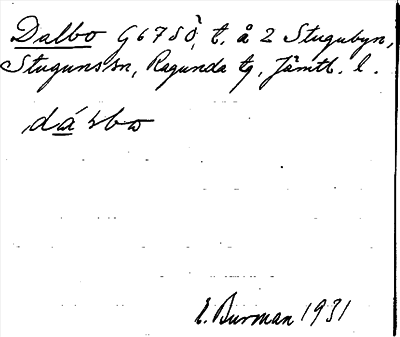 Dalbo G67SÖ, t. å 2 Stugubyn,
Stuguns sn, Ragunda tg, Jämtl. l.
E. Burman 1931